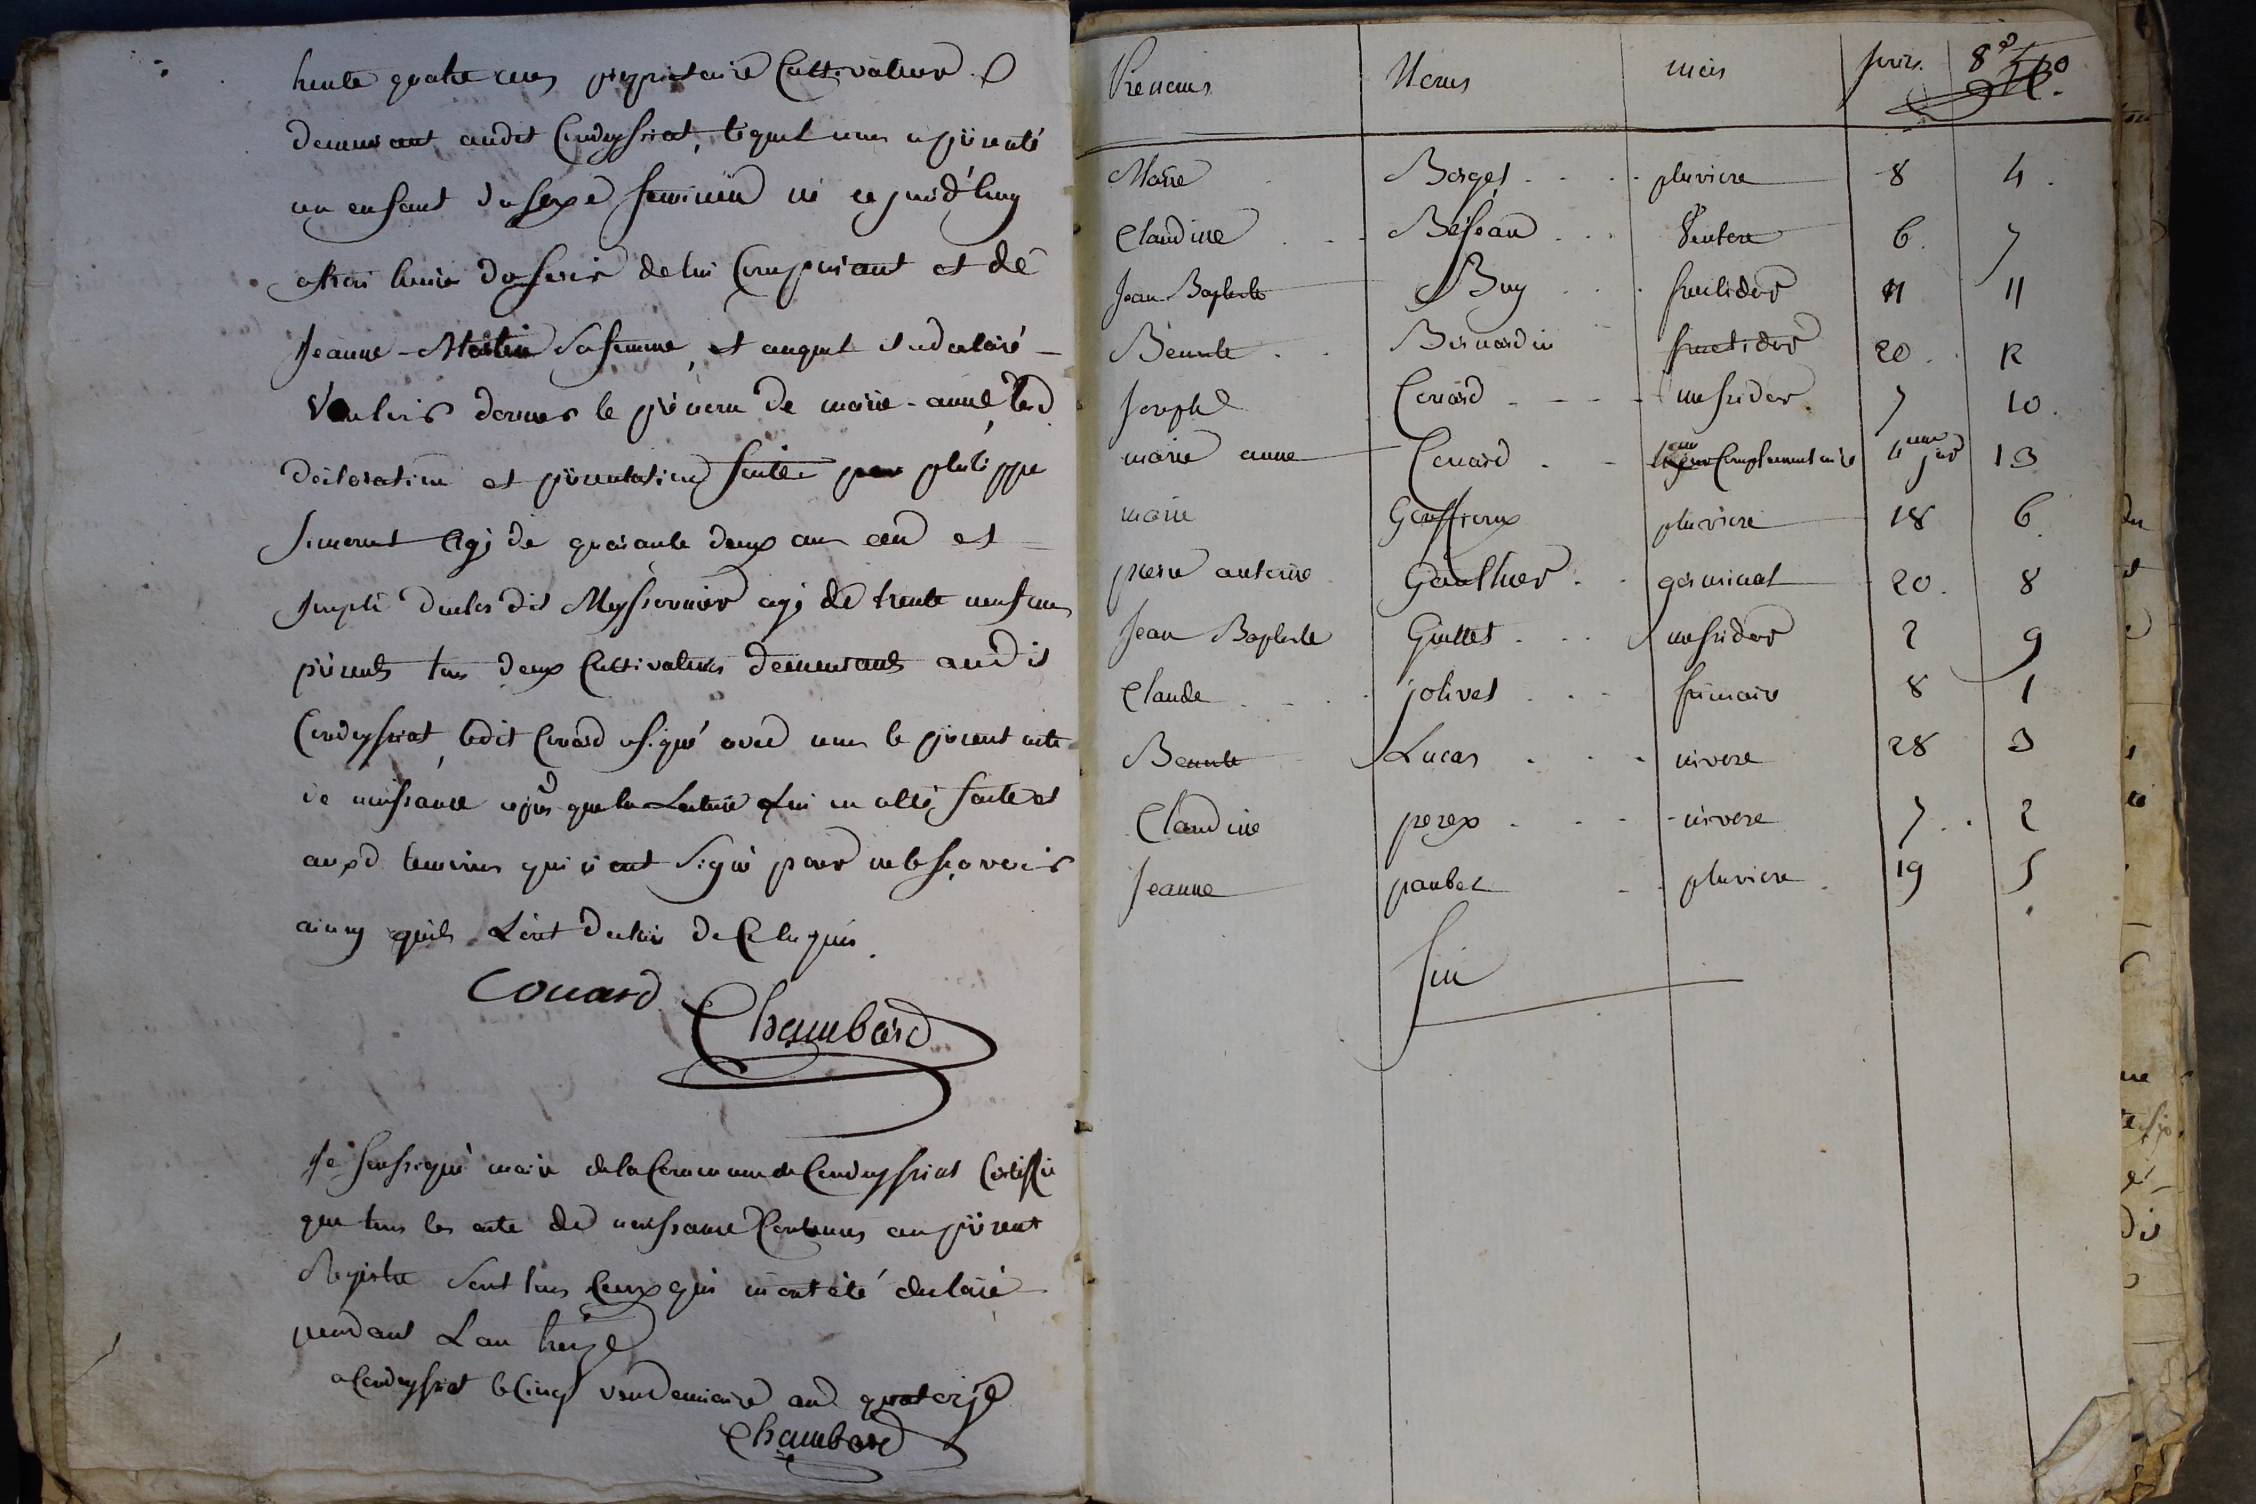 trente quatre ans propriétaire Cultivateur
demeurant audit Condeyssiat, lequel nous a présenté
un enfant du sexe feminin né ce jourd'huy
a trois heures du soir de lui Comparant et de
Jeanne Martin sa femme, et auquel il a déclaré
Vouloir donner le prénom de marie-anne, lesd
déclaration et présentation faite par philippe
agé de quarante deux ans et
dit Meyssonnier agé de trente neuf ans
présents tous deux Cultivateurs demeurants audit
Condeyssiat, ledit Couard a signé avec nous le présent acte
de naissance après que la Lecture Lui en a été faite et
auxd temoins qui n'ont signé pour ne le sçavoir
ainsy quils L'ont declaré de Ce Requis.
Couard
Chambard
Je soussigné maire de la Commune de Condeyssiat Certiffie
que tous les acte de naissance Contenus au présent
Registre sont tous Ceux qui m'ont été declaré
pendant L'an treize
a Condeyssiat le Cinq vendemiaire an quatorze
Chambard
Prénoms Noms mois jours.
Marie Borget pluviose 8 4.
Claudine Ventose 6. 7
Jean Baptiste Buy fructidor 11 11
Benoite Bernardin fructidor 20 12
Joseph Couard messidor 7 10.
marie anne Couard Complementaire 4 13
marie Gouffroux pluviose 18 6.
pierre antoine Gauthier germinal 20. 8
Jean Baptiste Guillet messidor 2 9
Claude jolivet frimaire 8 1
Benoite Lucas nivose 28 3
Claudine perex nivose 7 2
Jeanne paubel pluviose 19 5
fin